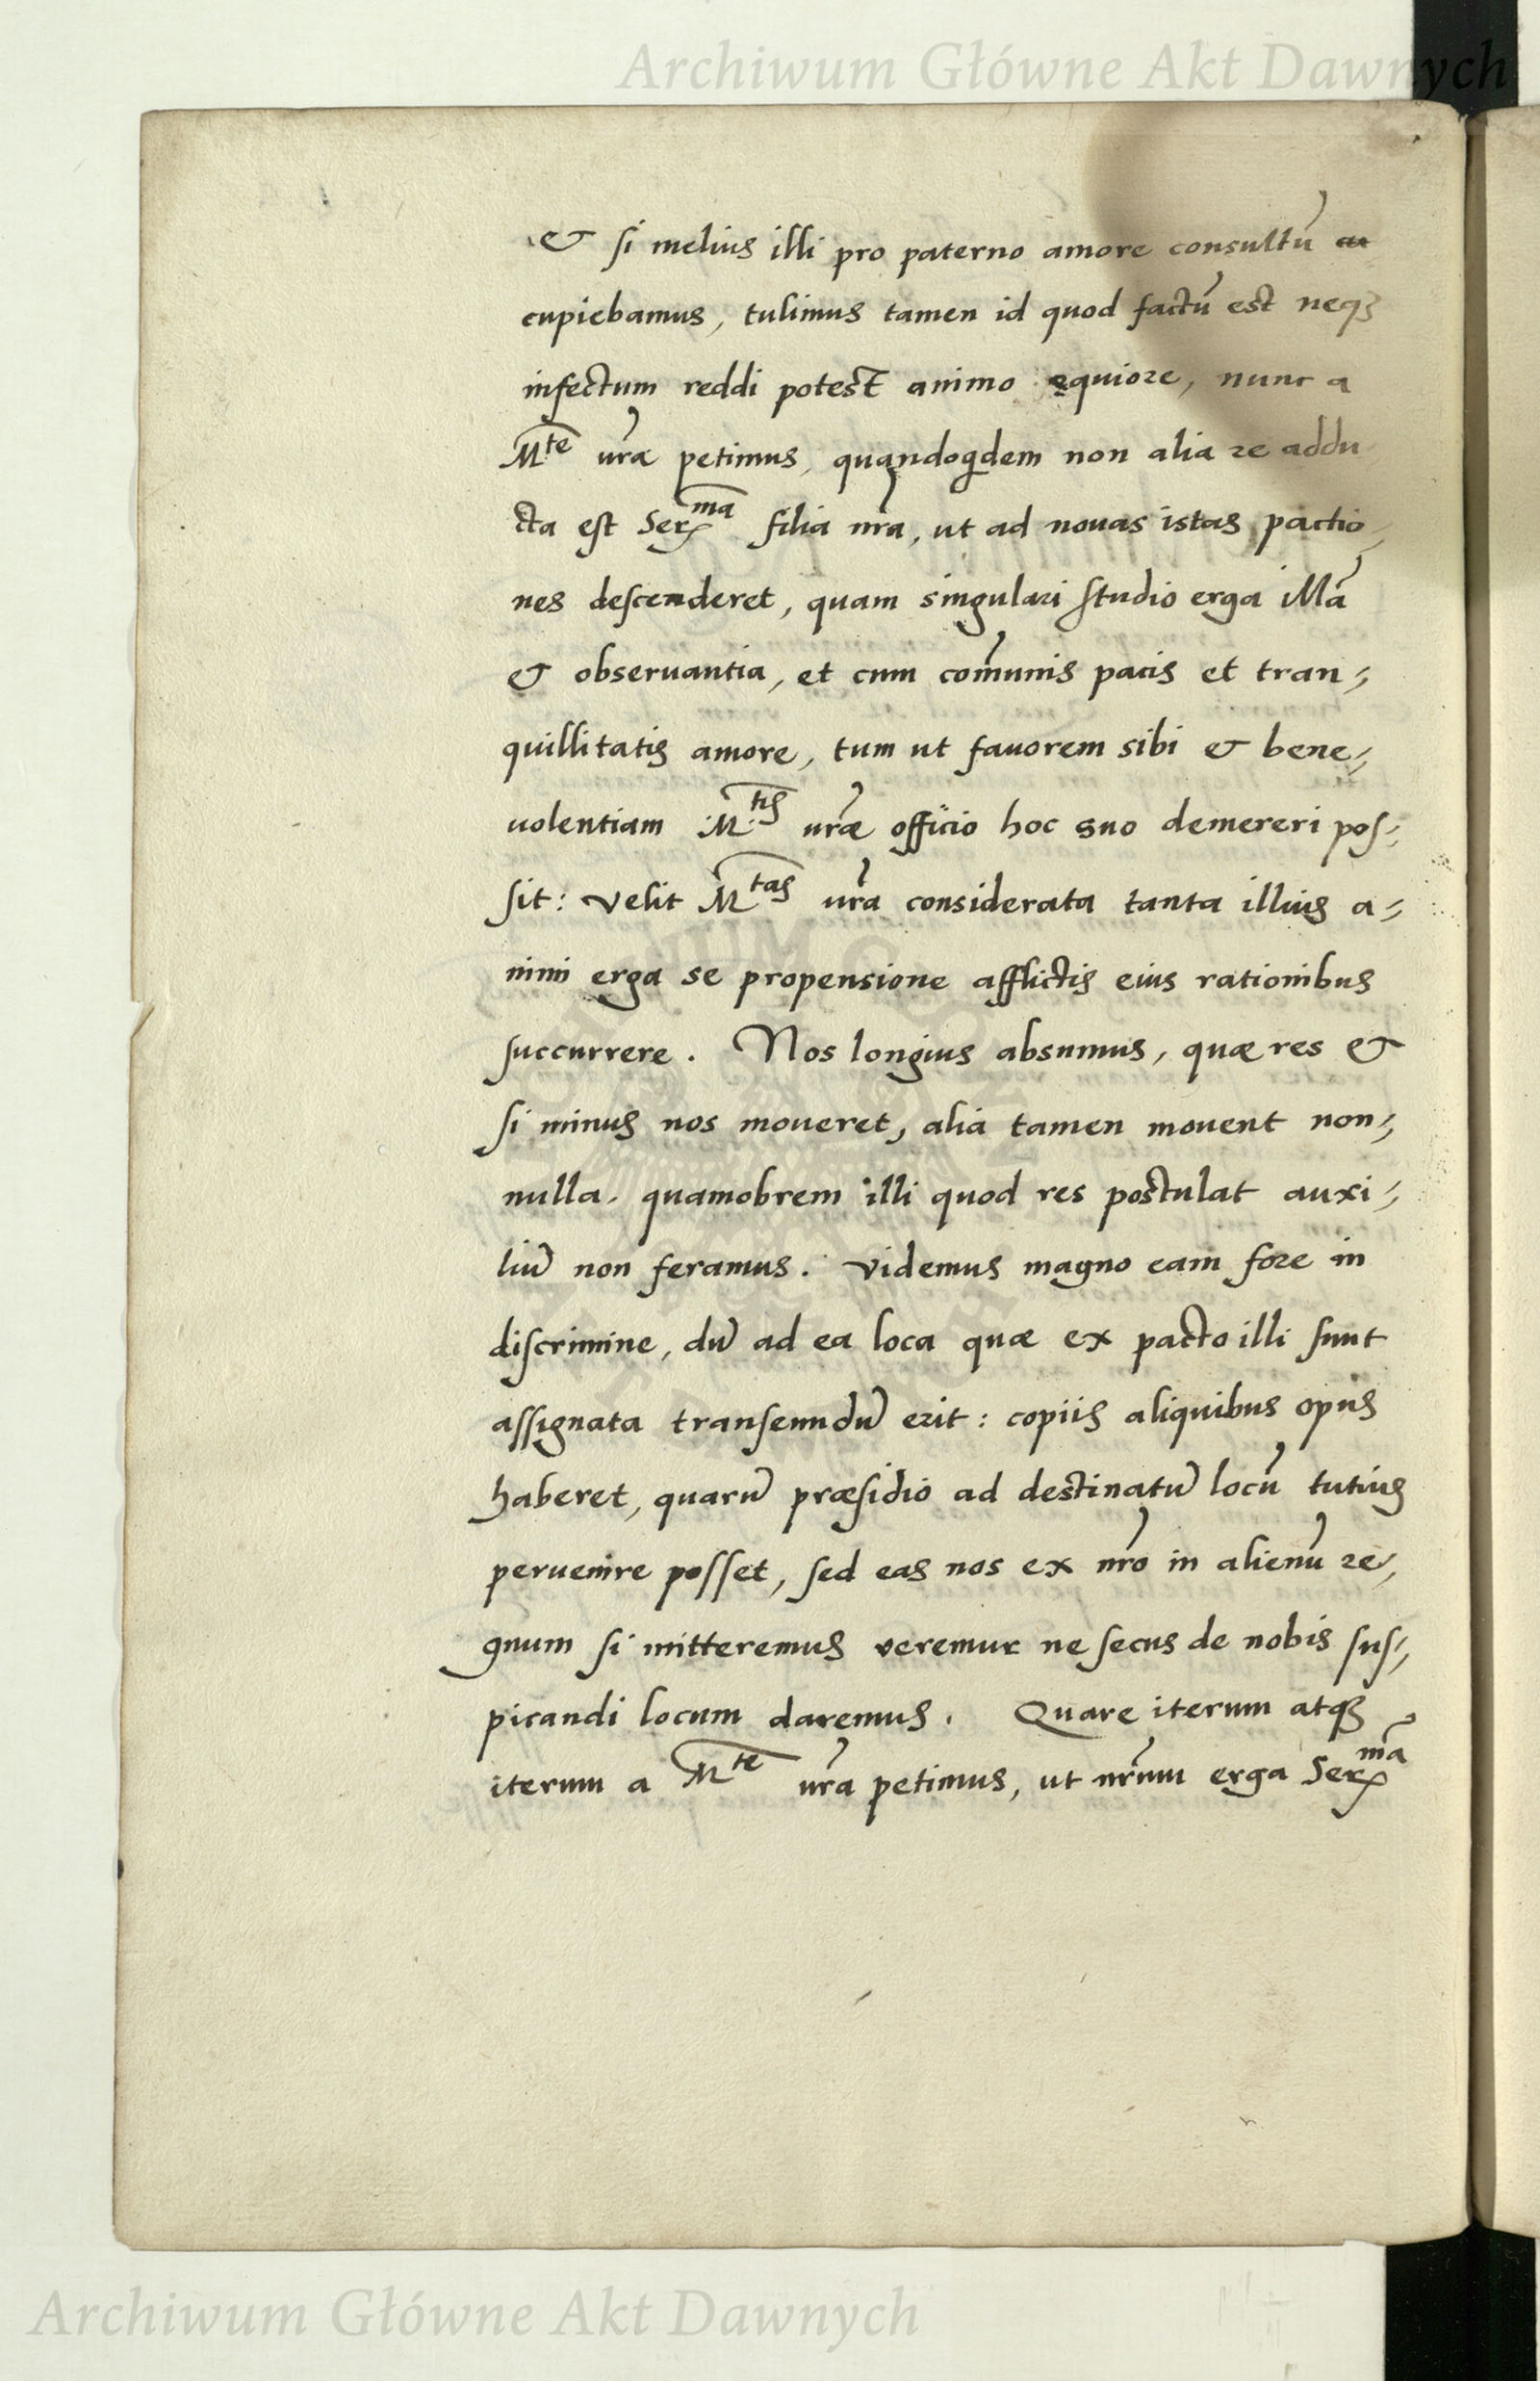 Archiwum Główne Akt Dawnych
& si melius illi pro paterno amore consultũ
cupiebamus, tulimus tamen id quod factũ est neqꝫ
infectum reddi potest animo ęquiore, nunc a
M^te vr̃a petimus, quandoq̃dem non alia re addu
cta est Ser^ma filia nr̃a, ut ad nouas istas pactio
nes descenderet, quam singulari studio erga illã
& obseruantia, et cum com̃unis pacis et tran-
quillitatis amore, tum ut fauorem sibi & bene-
uolentiam M^tis vr̃æ officio hoc suo demereri pos-
sit: velit M^tas vr̃a considerata tanta illius a-
nimi erga se propensione afflictis eius rationibus
succurrere. Nos longius absumus, quæ res &
si minus nos moueret, alia tamen mouent non-
nulla, quamobrem illi quod res postulat auxi-
liũ non feramus. Videmus magno eam fore in
discrimine, dũ ad ea loca quæ ex pacto illi sunt
assignata transeundũ erit: copiis aliquibus opus
haberet, quarũ præsidio ad destinatũ locũ tutius
peruenire posset, sed eas nos ex nr̃o in alienũ re-
gnum si mitteremus veremur ne secus de nobis sus-
picandi locum daremus. Quare iterum atqꝫ
iterum a M^te vr̃a petimus, ut nr̃um erga Ser^mã
Archiwum Główne Akt Dawnych